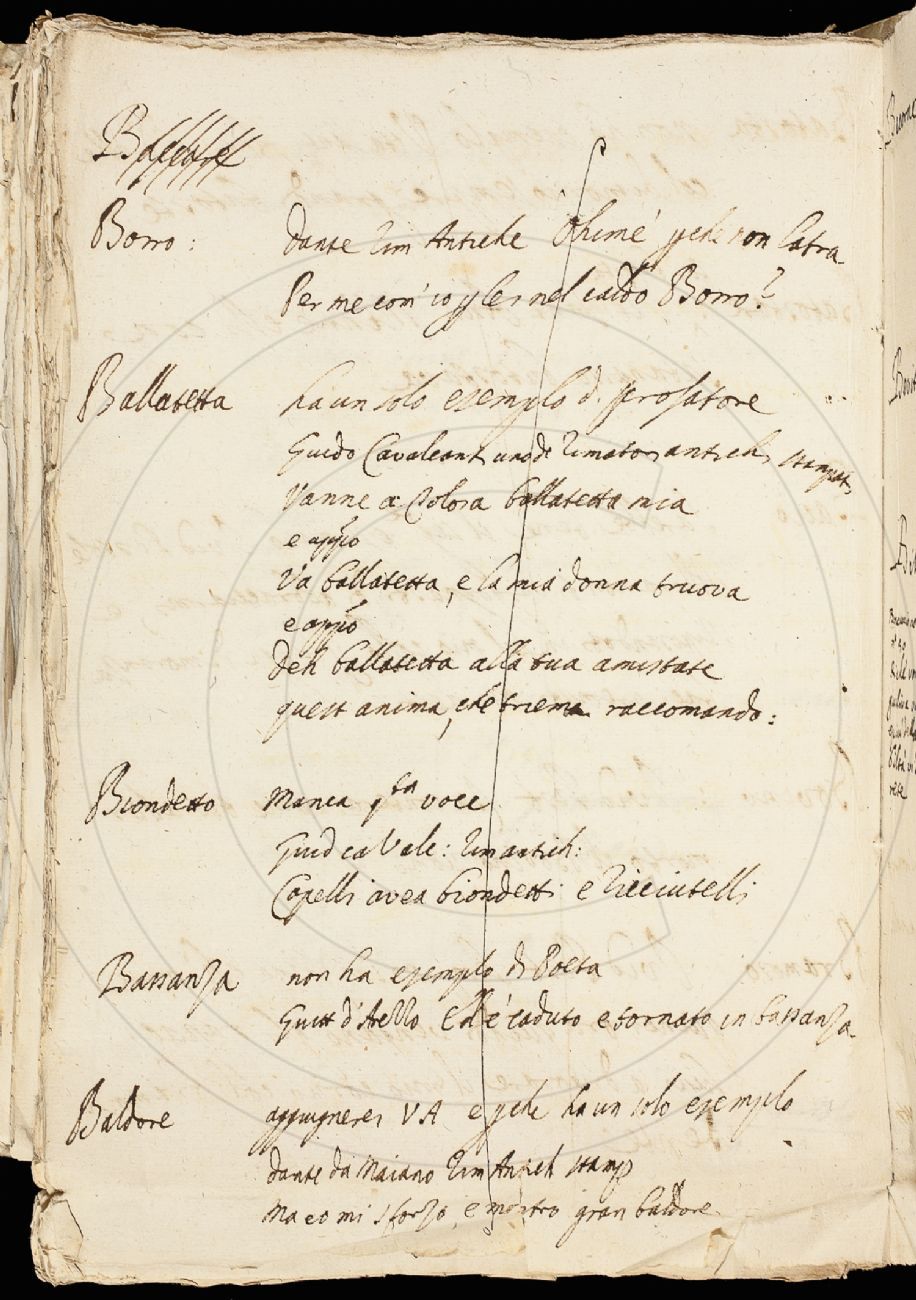 Borro:
Dante Rim Antiche Ohimé pche non latra
Per me com' io p ler nel caldo Borro?
Ballatetta
ha un solo esemplo di prosatore
Guido Cavalcanti uno de Rimatori antichi stampati
Vanne a Tolosa ballatetta mia
e appo
Va ballatetta, e la mia donna truova
e appo
Deh ballatetta alla tua amistate
quest anima, che triema raccomando:
Biondetto
Manca qsta voce
Guid caVale: Rim antich:
Capelli avea biondetti e ricciutelli
Bassanza
non ha esemplo di Poeta
Guitt d'Arezzo Ell'é caduto e tornato in bassanza
Baldore
aggiugnerei V A e pche ha un solo esemplo
Dante da Maiano Rim Antich stamp
Ma eo mi sforzo, e mostro gran baldore